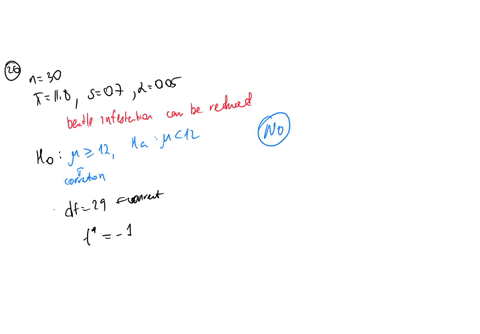 26
n=30
x̄=11.8, s=0.7, α=0.05
beatle infestation can be reduced
H₀: μ ≥ 12, Ha: μ < 12
No
df=29 ← correct
t* = -1